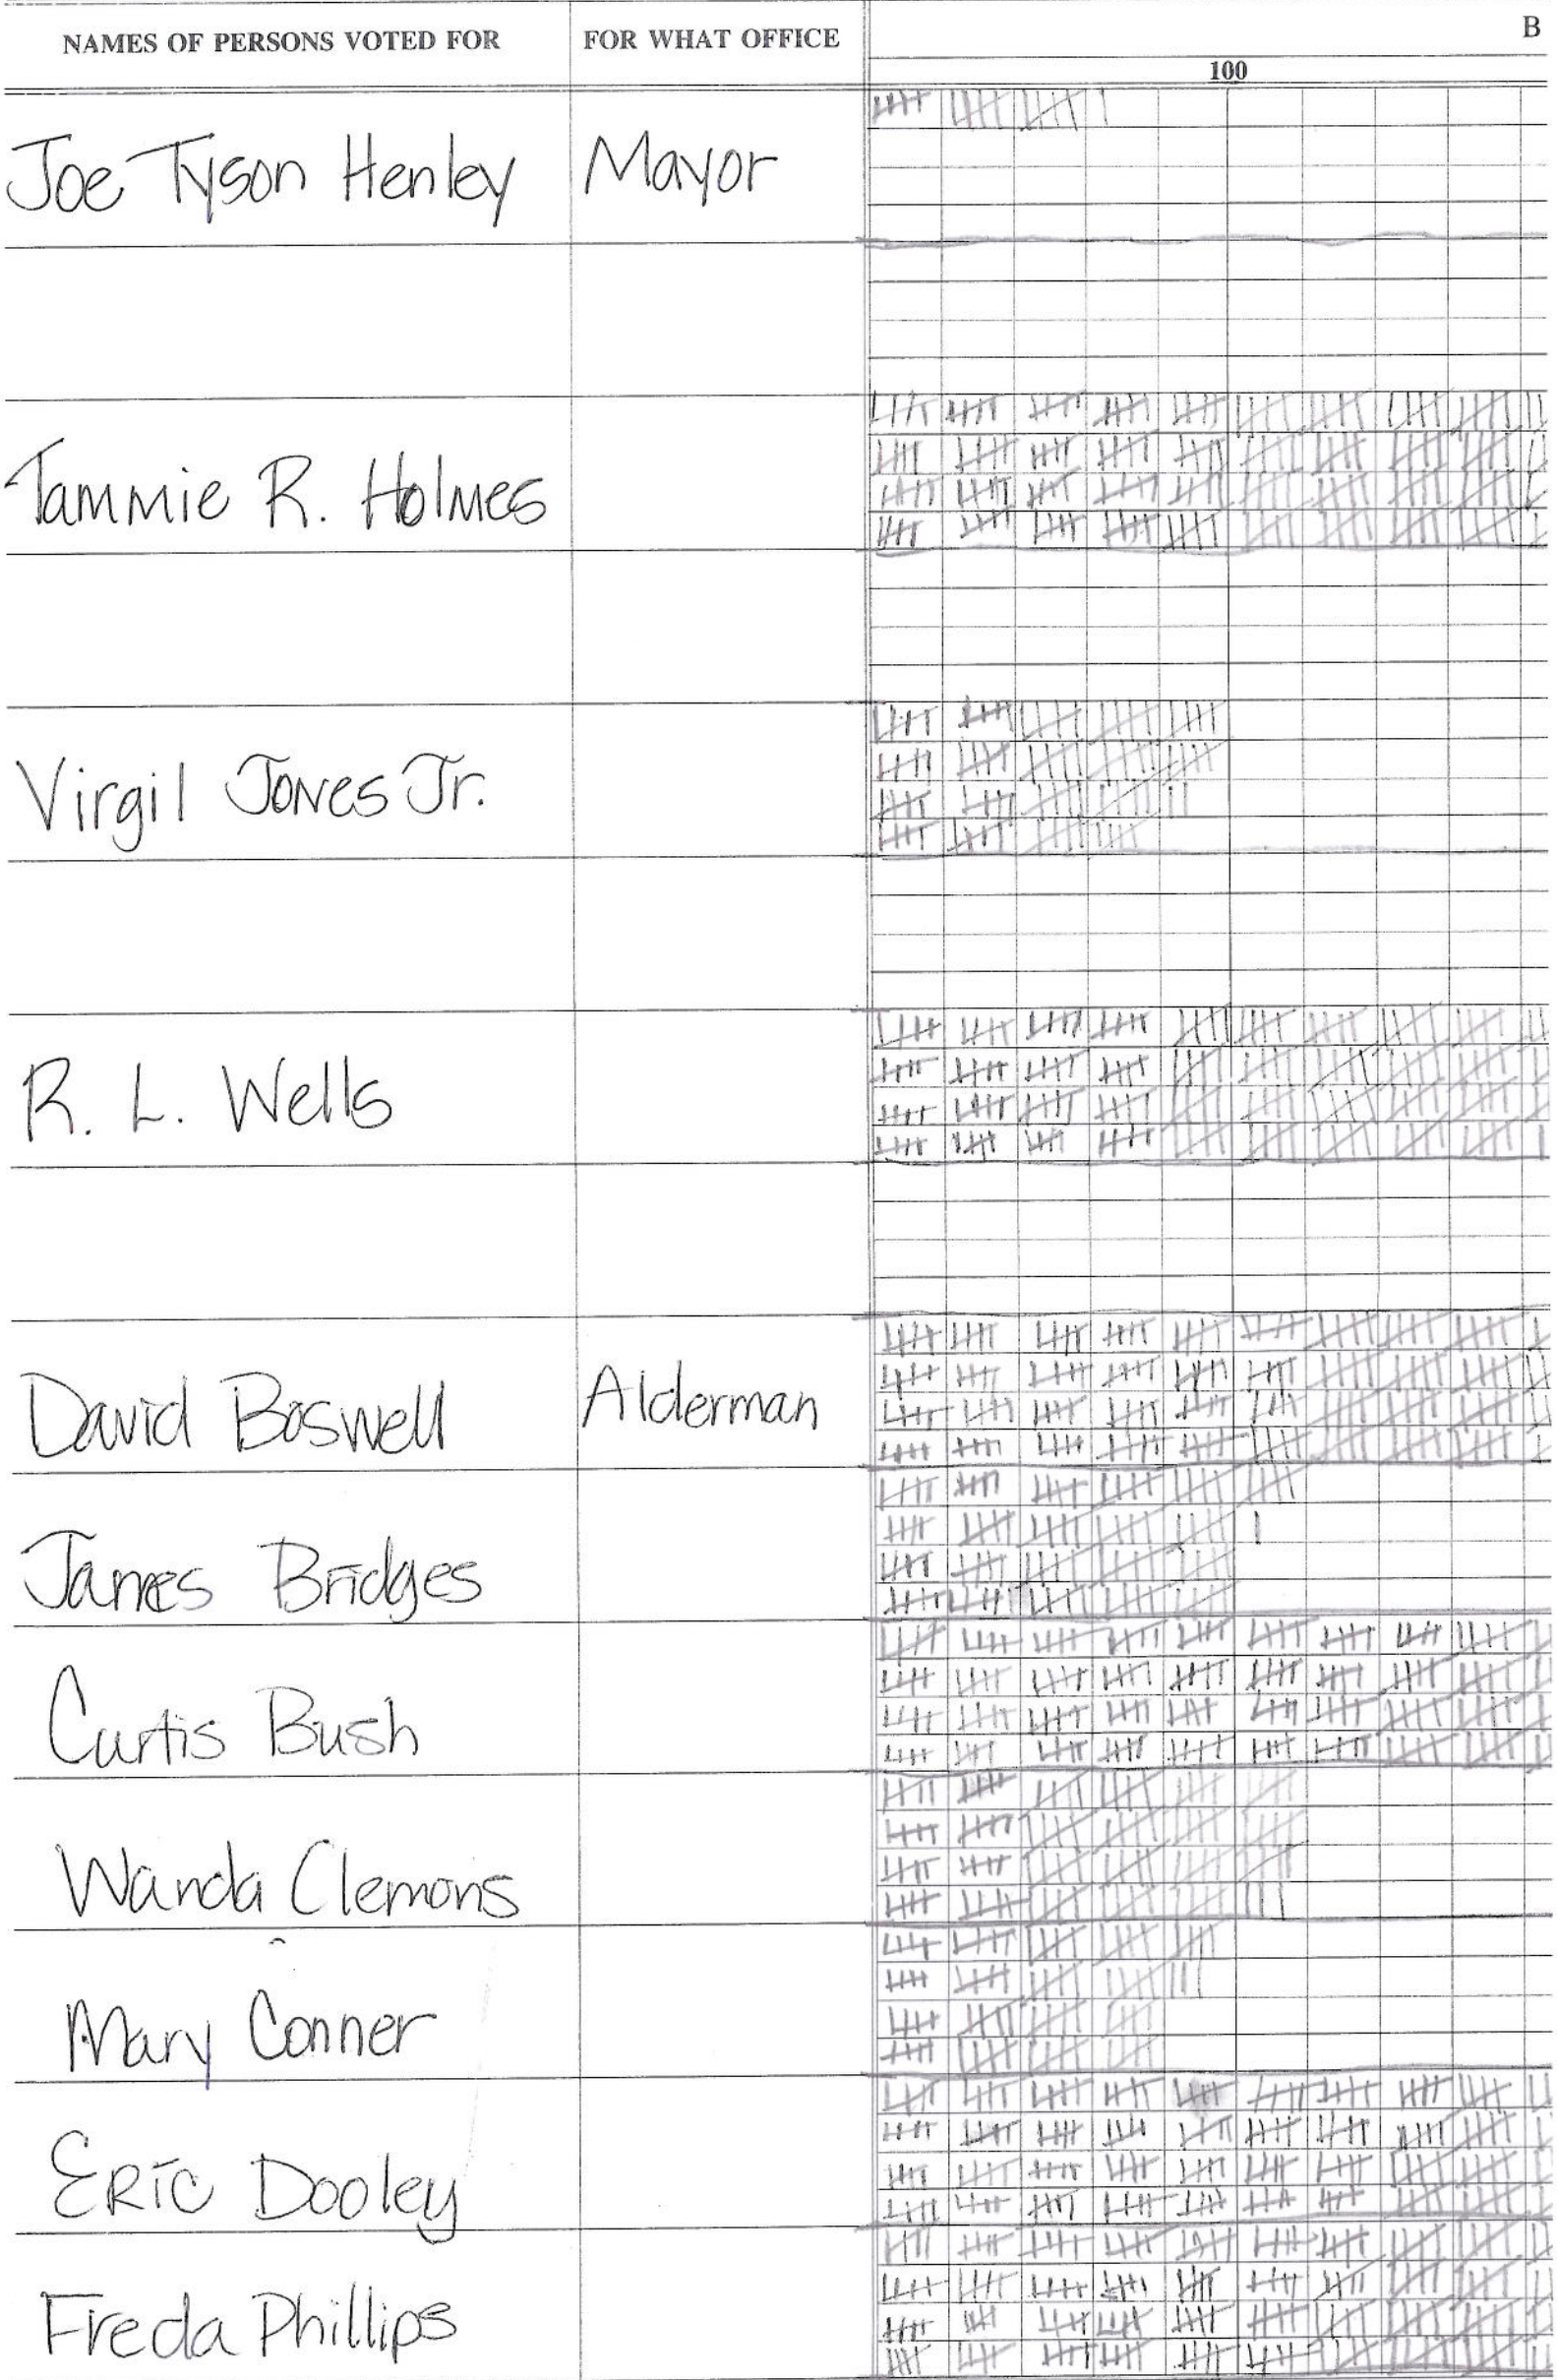 NAMES OF PERSONS VOTED FOR FOR WHAT OFFICE B
100
Joe Tyson Henley Mayor
Tammie R. Holmes
Virgil Jones Jr.
R. L. Wells
David Boswell Alderman
James Bridges
Curtis Bush
Wanda Clemons
Mary Conner
Eric Dooley
Freda Phillips